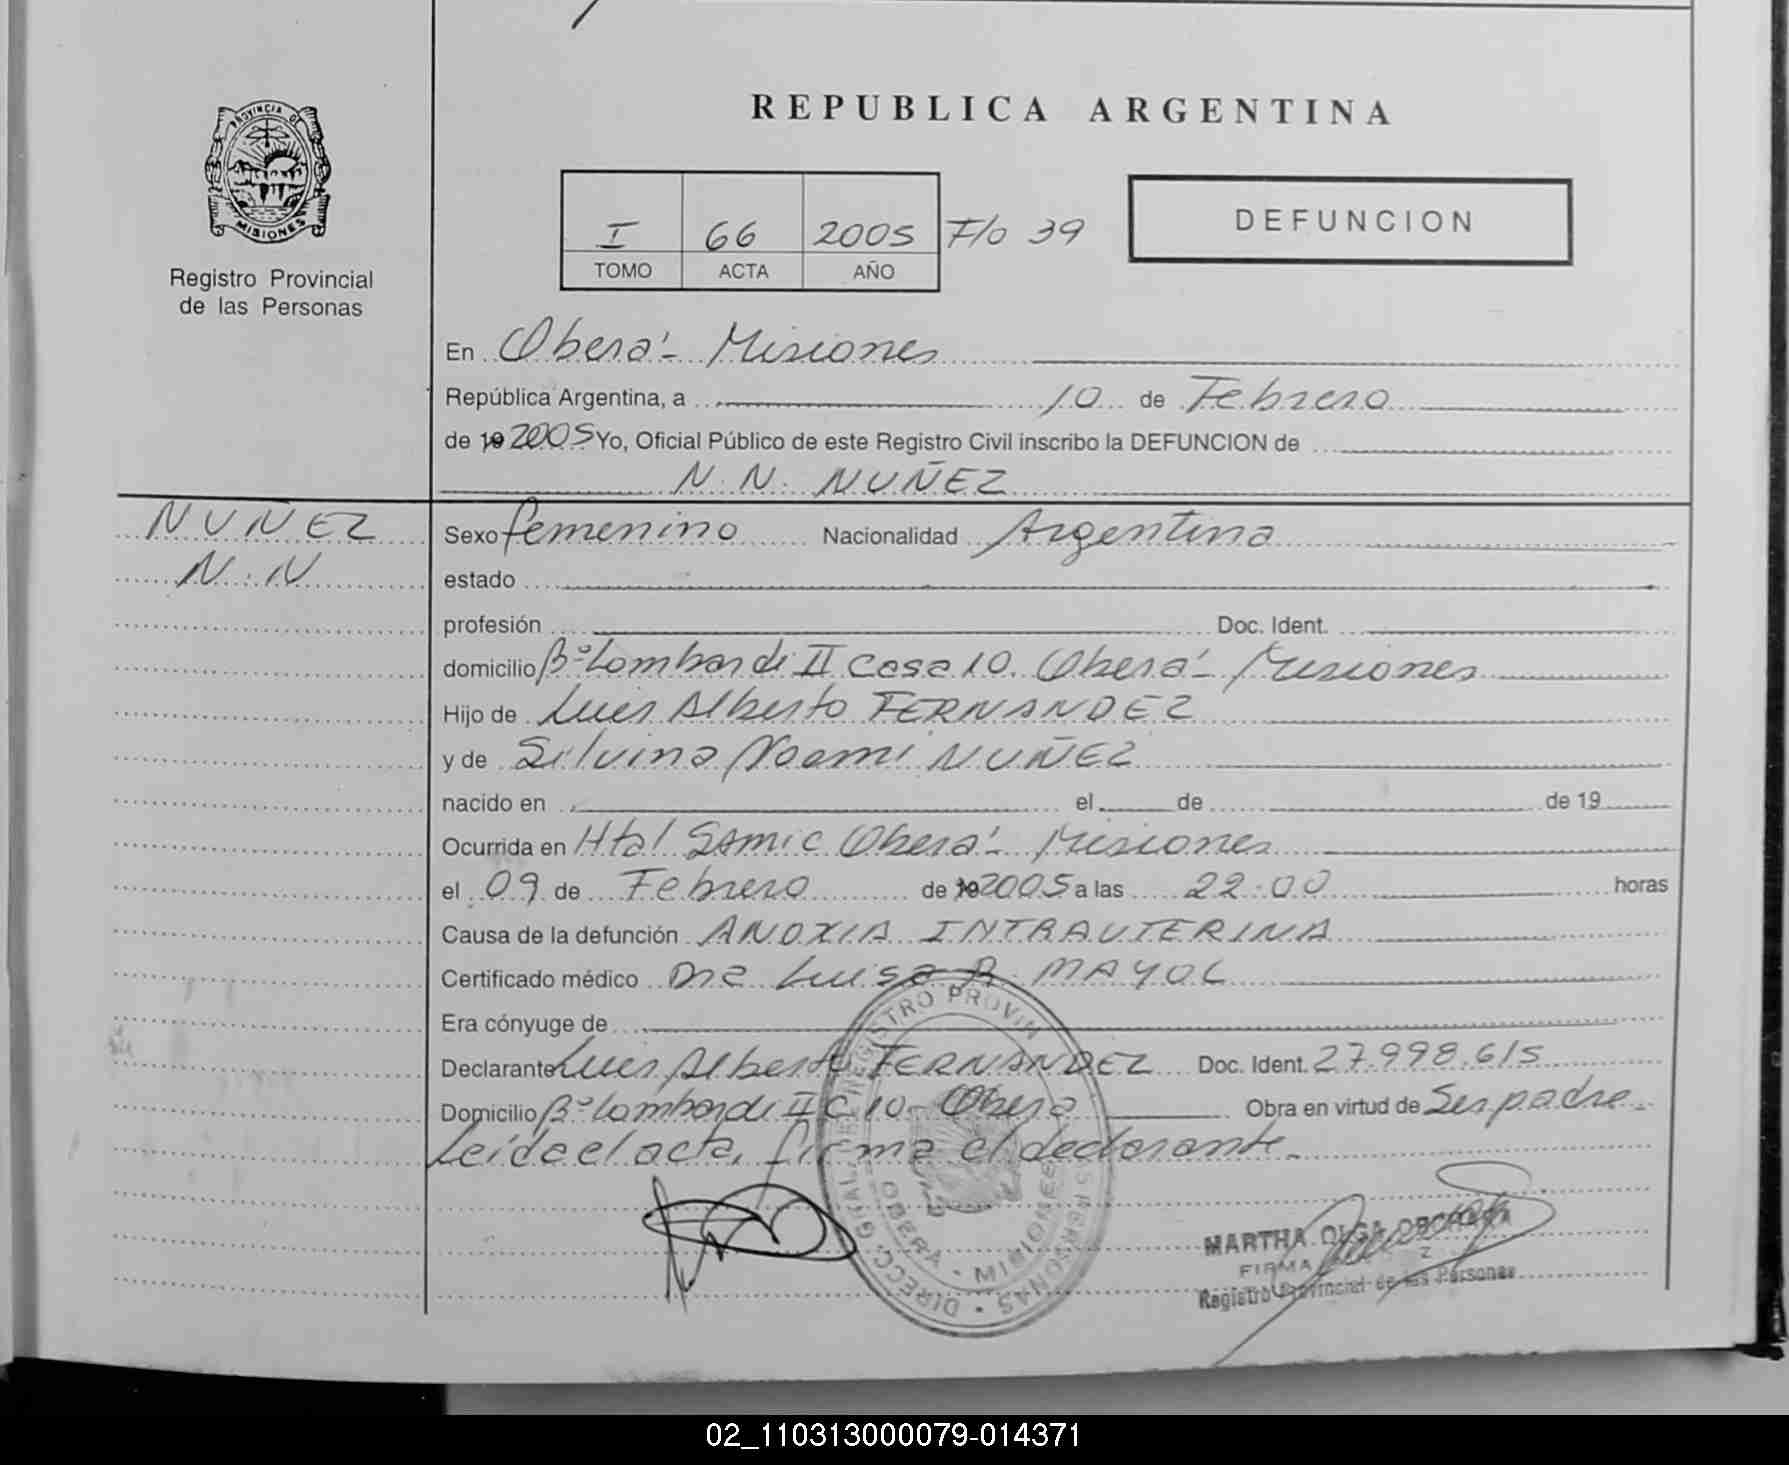 REPUBLICA ARGENTINA
PROVINCIA DE
MISIONES
Registro Provincial
de las Personas
I 66 2005 F/o 39
TOMO ACTA AÑO
DEFUNCION
En Oberá - Misiones
República Argentina, a 10 de Febrero
de 19 2005 Yo, Oficial Público de este Registro Civil inscribo la DEFUNCION de
N. N. NUÑEZ
NUÑEZ
N. N
Sexo femenino Nacionalidad Argentina
estado
profesión Doc. Ident.
domicilio Bº Lombardi II Casa 10. Oberá - Misiones
Hijo de Luis Alberto FERNANDEZ
y de Silvina Noemi NUÑEZ
nacido en el de de 19
Ocurrida en Htal Samic Oberá - Misiones
el 09 de Febrero de 19 2005 a las 22:00 horas
Causa de la defunción ANOXIA INTRAUTERINA
Certificado médico Dra Luisa R. MAYOL
Era cónyuge de
Declarante Luis Alberto FERNANDEZ Doc. Ident. 27.998.615
Domicilio Bº Lombardi II C 10 - Obera Obra en virtud de Ser padre -
Leída el acta, firma el declarante -
DIRECC. GRAL. REGISTRO PROVIN PERSONAS
OBERA - MISIONES
MARTHA OLGA
FIRMA
Registro Provincial de las Personas
02_110313000079-014371